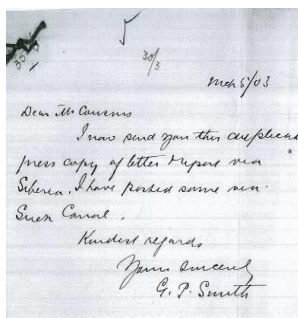 30/3
Mch 5/03
Dear Mr Cousins
I now send you this duplicate
press copy of letter & report via
Siberia. I have posted same via
Suez Canal.
Kindest regards
Yours sincerely
G. P. Smith